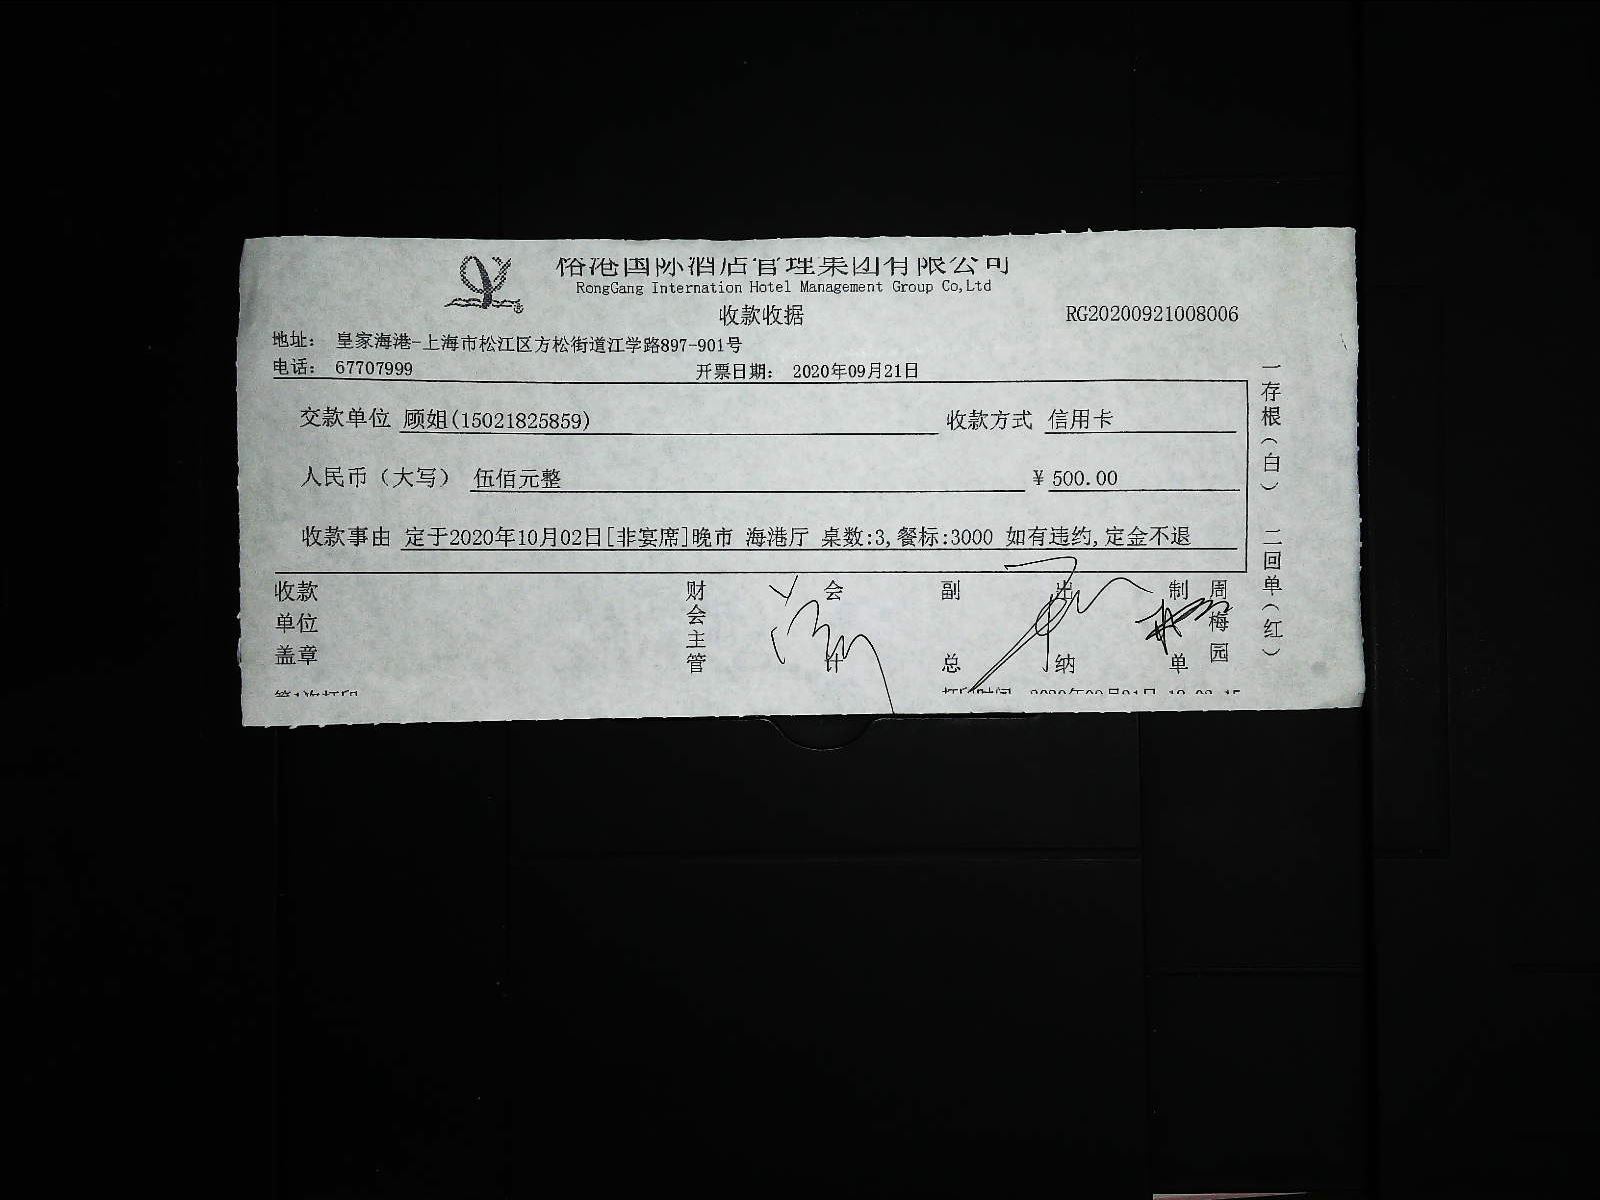 榕港国际酒店管理集团有限公司
RongGang Internation Hotel Management Group Co,Ltd
收款收据
RG20200921008006
地址： 皇家海港-上海市松江区方松街道江学路897-901号
电话： 67707999 开票日期： 2020年09月21日
交款单位 顾姐(15021825859) 收款方式 信用卡
人民币（大写） 伍佰元整 ¥ 500.00
收款事由 定于2020年10月02日[非宴席]晚市 海港厅 桌数:3,餐标:3000 如有违约,定金不退
收款单位盖章 财会主管 会计 副总 出纳 制单 周梅园
第1次打印 打印时间 2020年09月21日
一存根（白） 二回单（红）